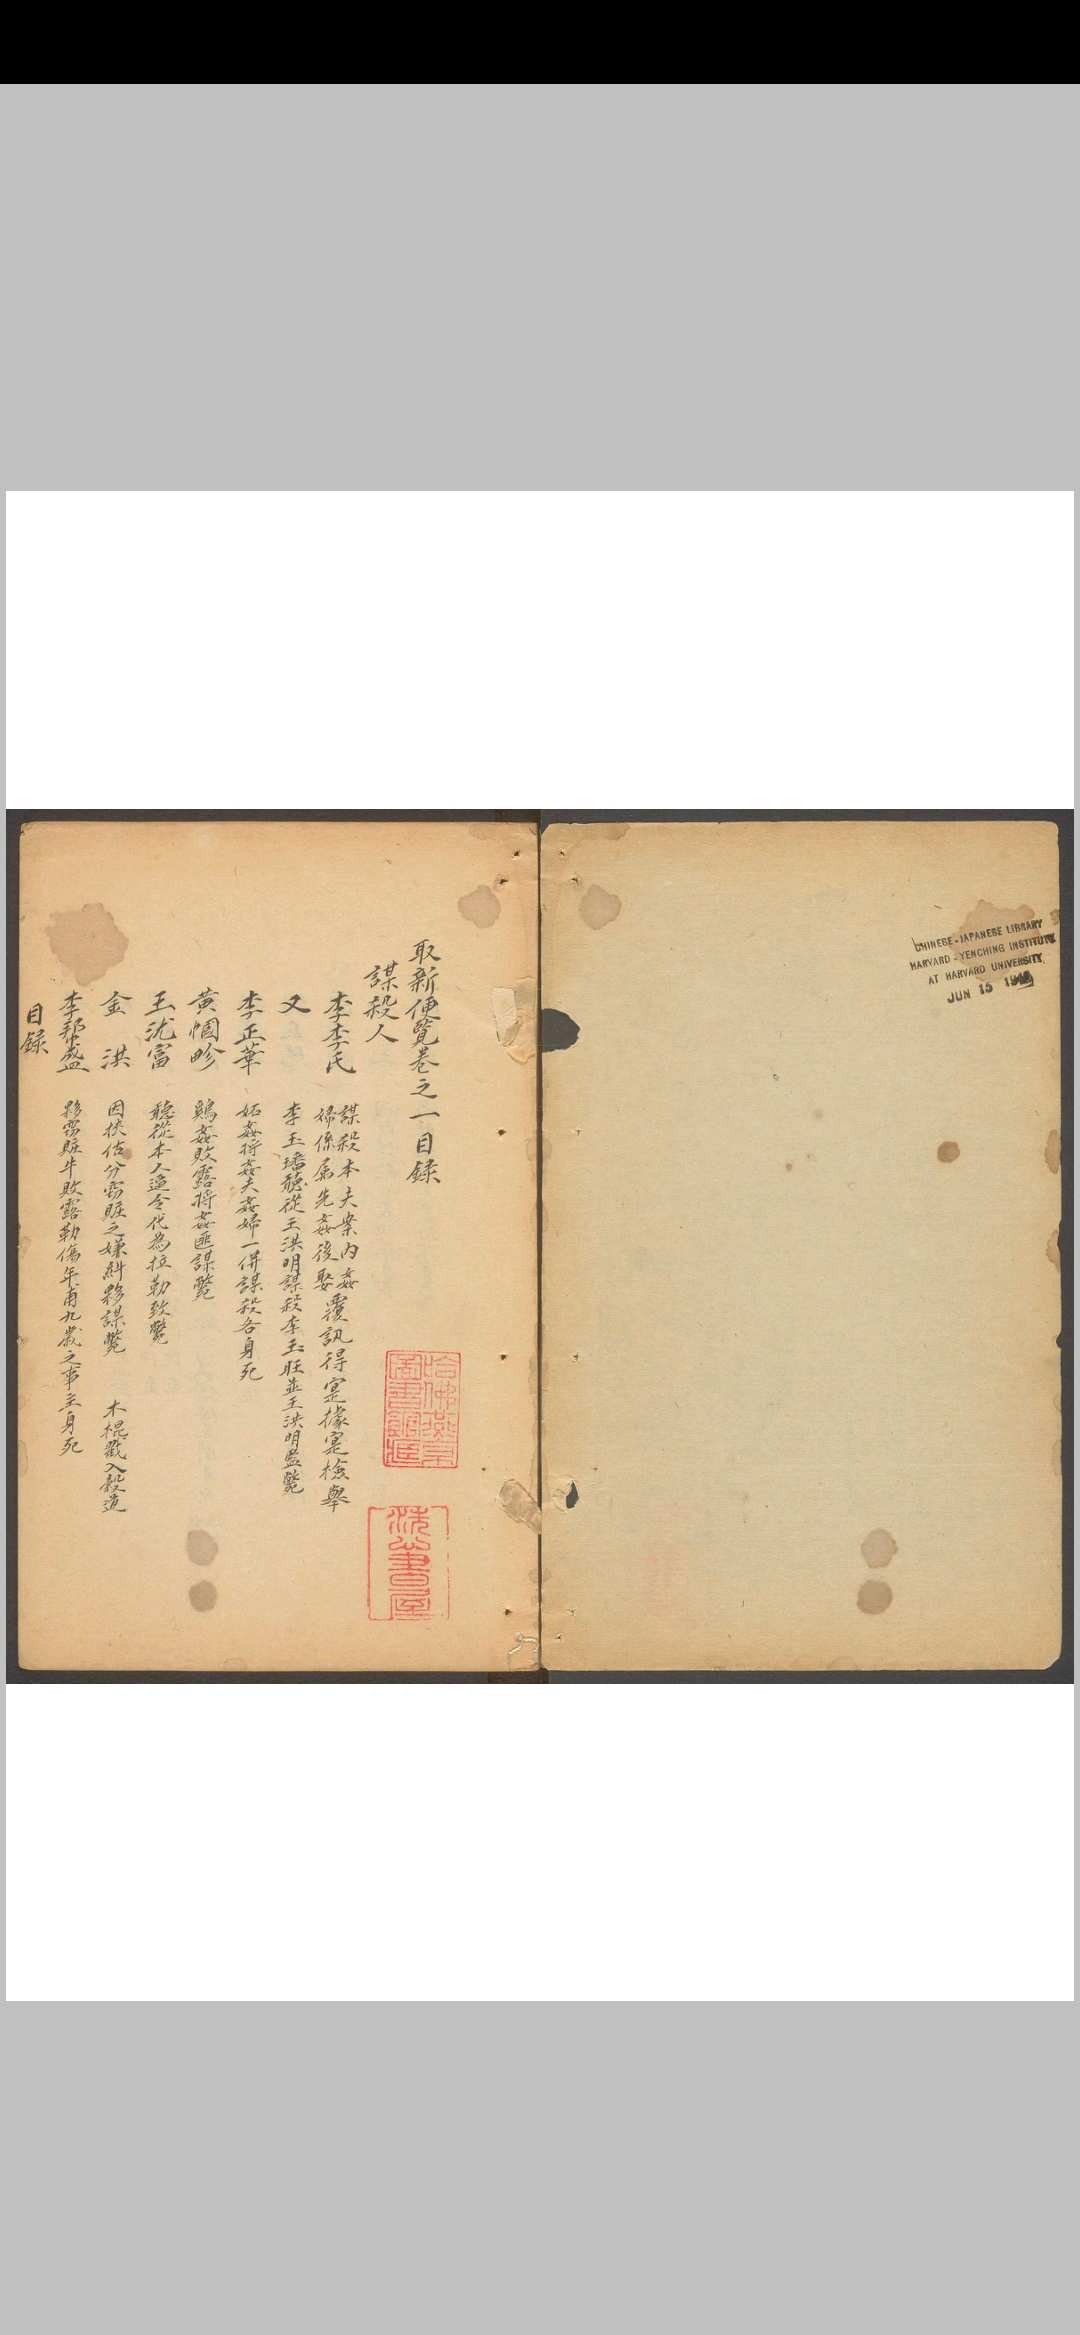 CHINESE-JAPANESE LIBRARY
HARVARD-YENCHING INSTITUTE
AT HARVARD UNIVERSITY
JUN 15
取新便覽卷之一目録
謀殺人
李李氏 謀殺本夫案內姦
婦係屬先姦後娶 覆訊得寔據寔檢舉
又 李玉璠聽從王洪明謀殺李玉旺並王洪明監斃
李正華 妬姦将姦夫姦婦一併謀殺各身死
黄帼畛 鷄姦敗露将姦匪謀斃
王沇富 聽從本人逼令代為拉勒致斃
金洪 因挟估分窃賍之嫌糾夥謀斃 木棍戳入穀道
李邦盛 夥窃賍牛敗露勒傷年甫九歲之事主身死
目録
哈佛燕京
圖書館藏
書屋